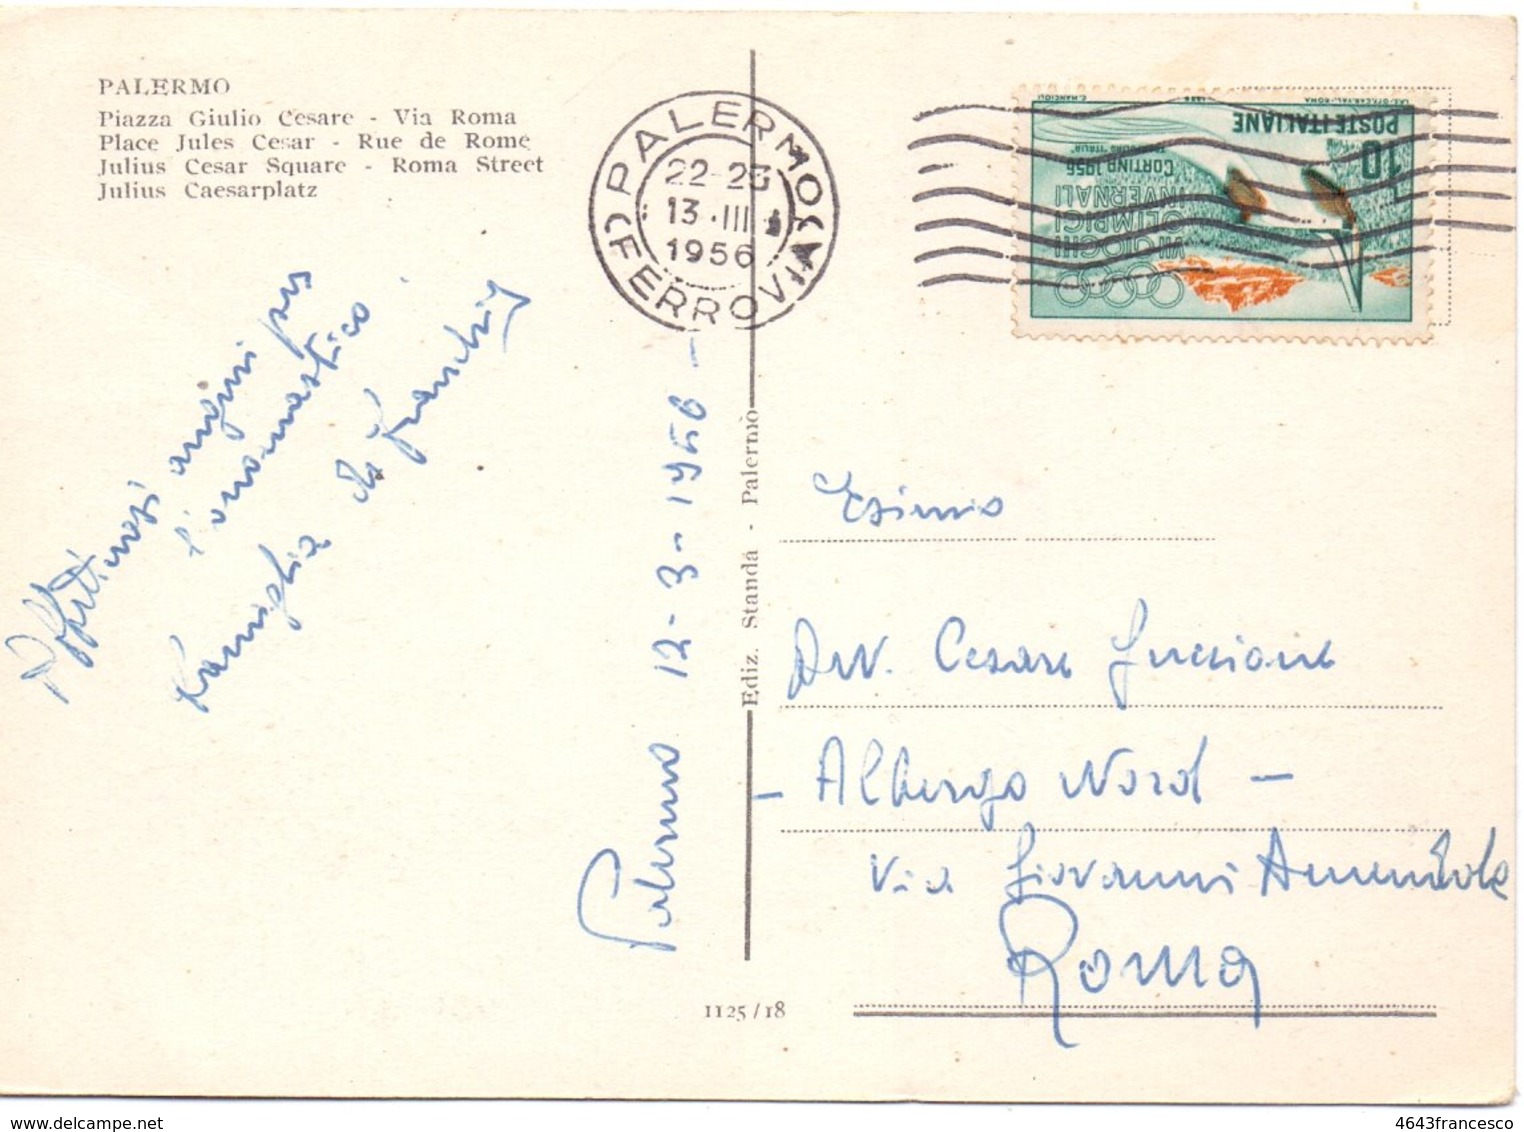 PALERMO
Piazza Giulio Cesare - Via Roma
Place Jules Cesar - Rue de Rome
Julius Cesar Square - Roma Street
Julius Caesarplatz
PALERMO
22-23
13 · III
1956
FERROVIA
POSTE ITALIANE
10
TRAMPOLINO "ITALIA"
CORTINA 1956
INVERNALI
OLIMPICI
VII GIOCHI
C. MANCIOLI
1956
Affettuosi auguri per
l'onomastico
Famiglia
Palermo 12-3-1956 -
Ediz. Standa - Palermo
Avv. Cesare
- Albergo Nord -
Via Giovanni Amendola
Roma
1125/18
4643francesco